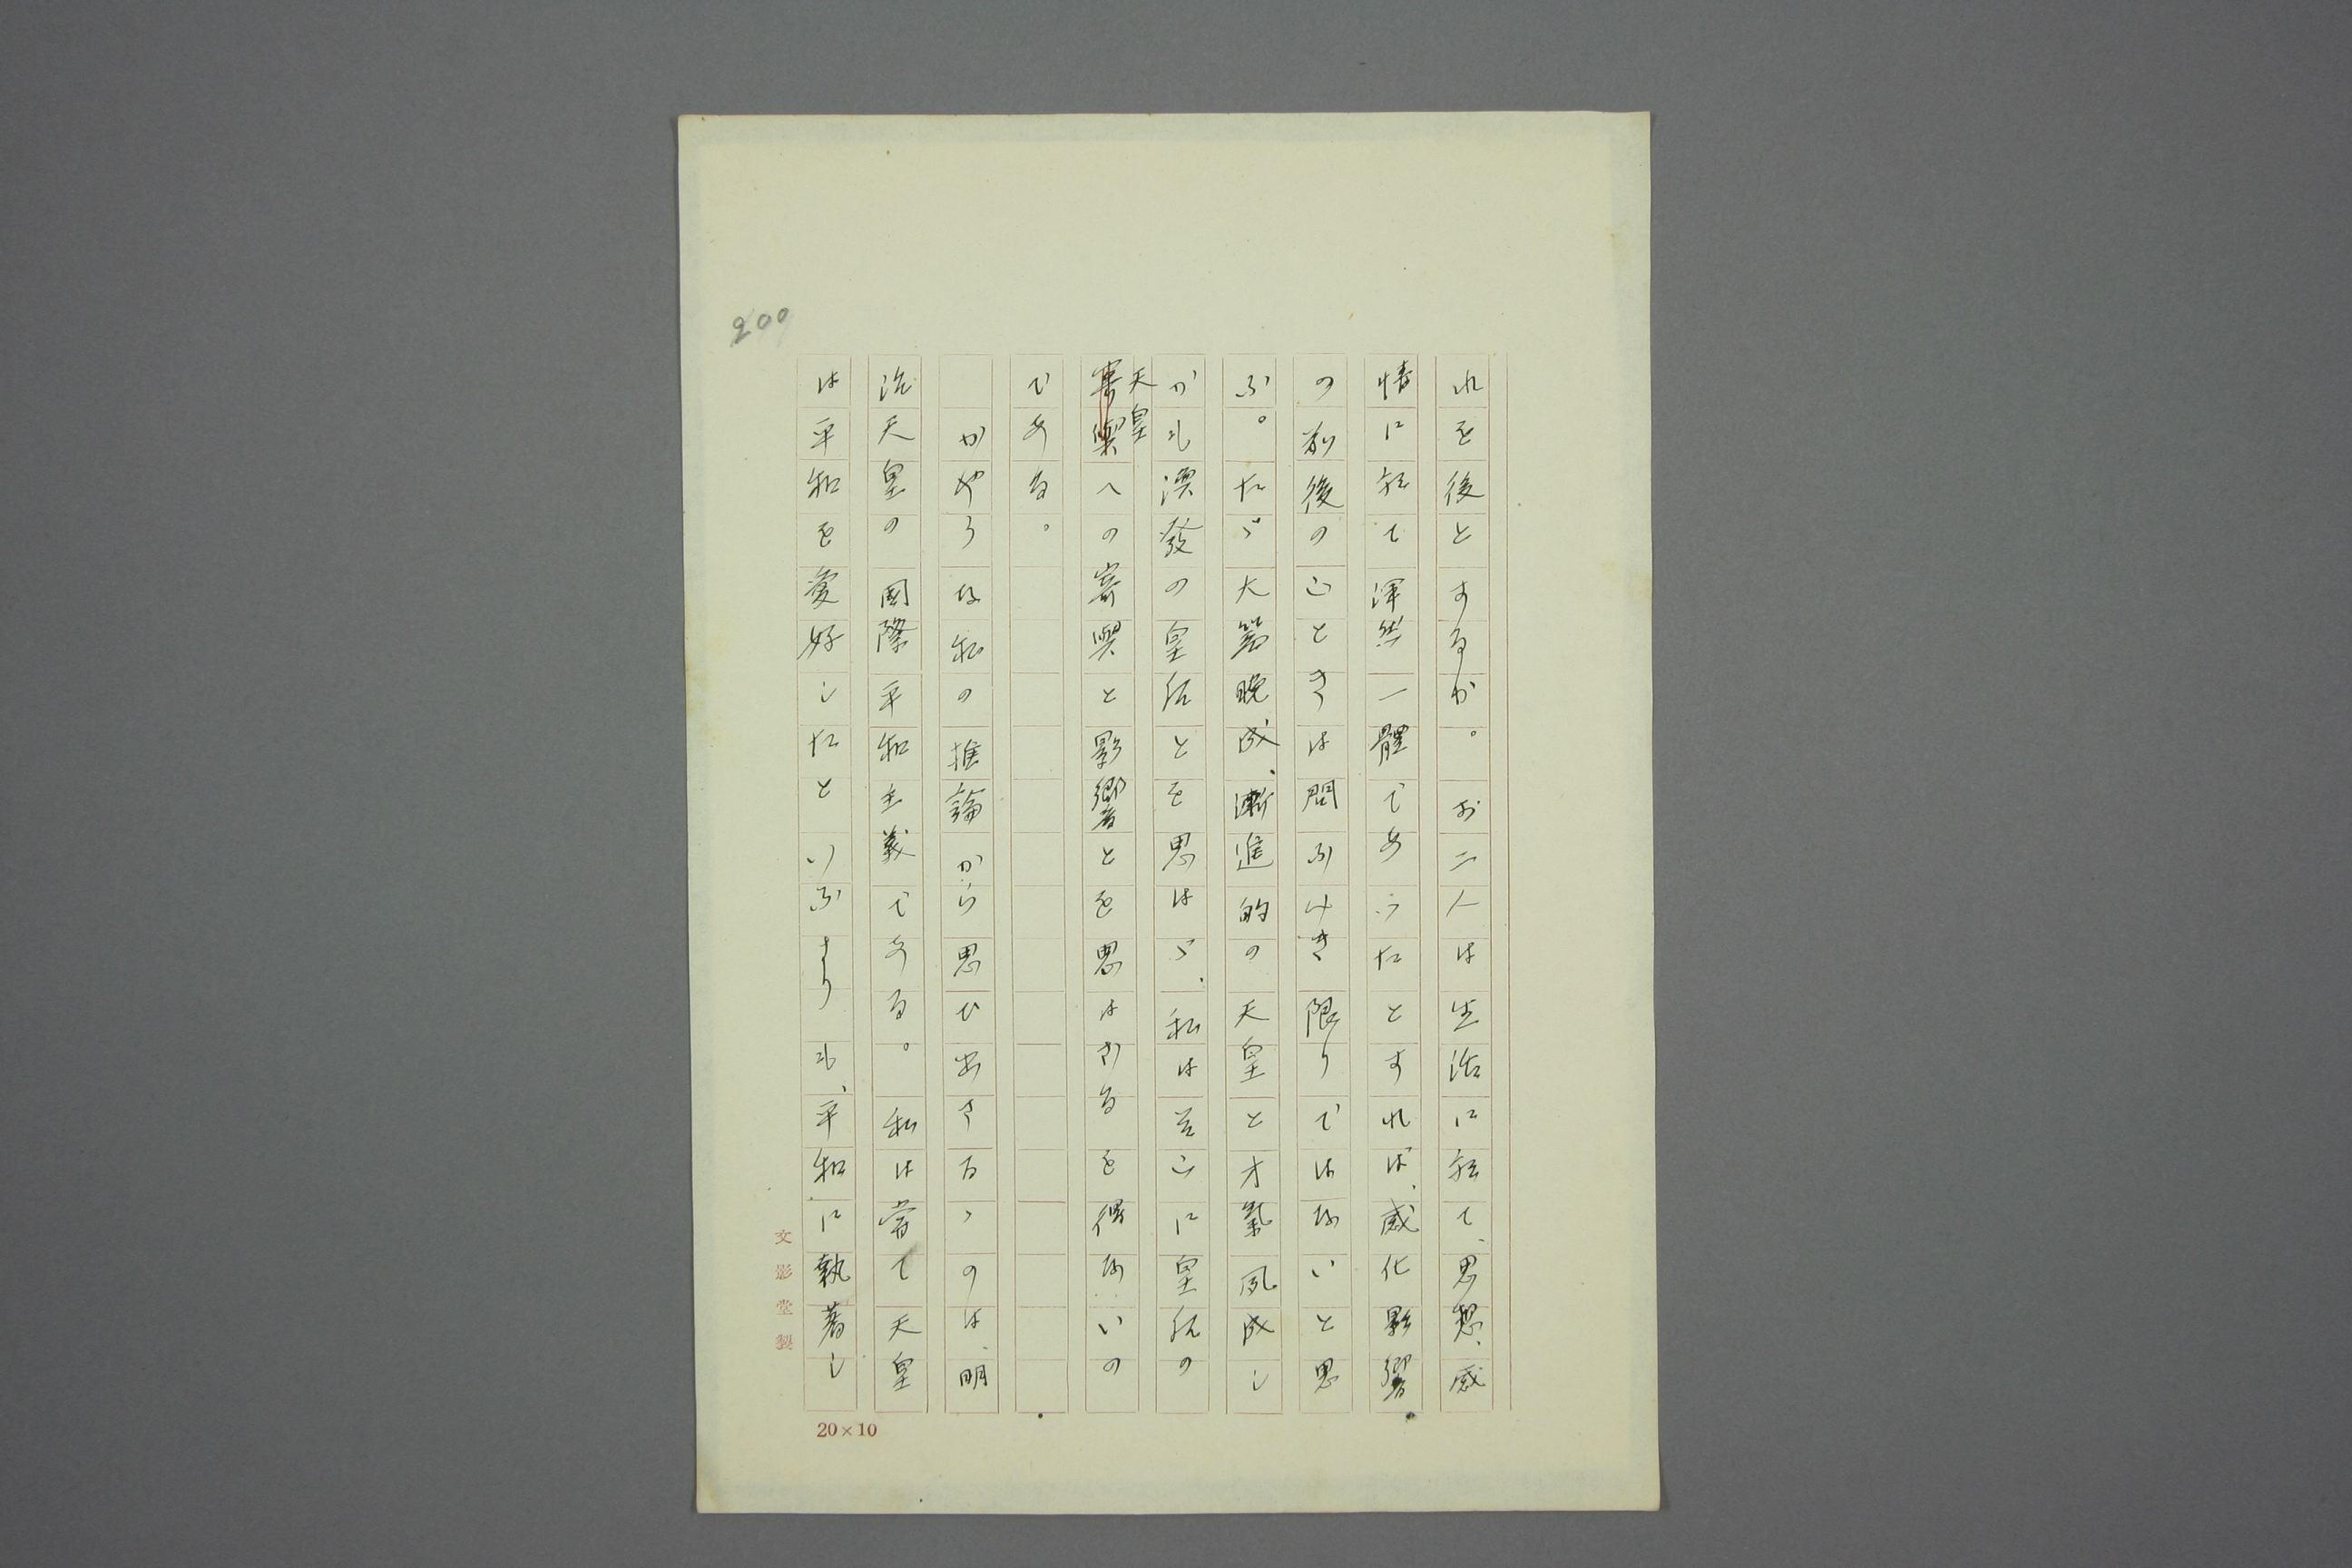 れを後とするか。お二人は生活に於て、思想、感
情に於て渾然一體であつたとすれば、感化影響
の前後のことまでは問ふべき限りではないと思
ふ。たゞ大器晩成、漸進的の天皇と才氣夙成し
かも渙發の皇后とを思はゞ、私はそこに皇后の
天皇
寄與への寄與と影響とを思はざるを得ないの
である。
かやうな私の推論から思ひ出さるゝのは、明
治天皇の國際平和主義である。私は嘗て天皇
は平和を愛好したといふよりも、平和に執著し
200
文影堂製
20×10